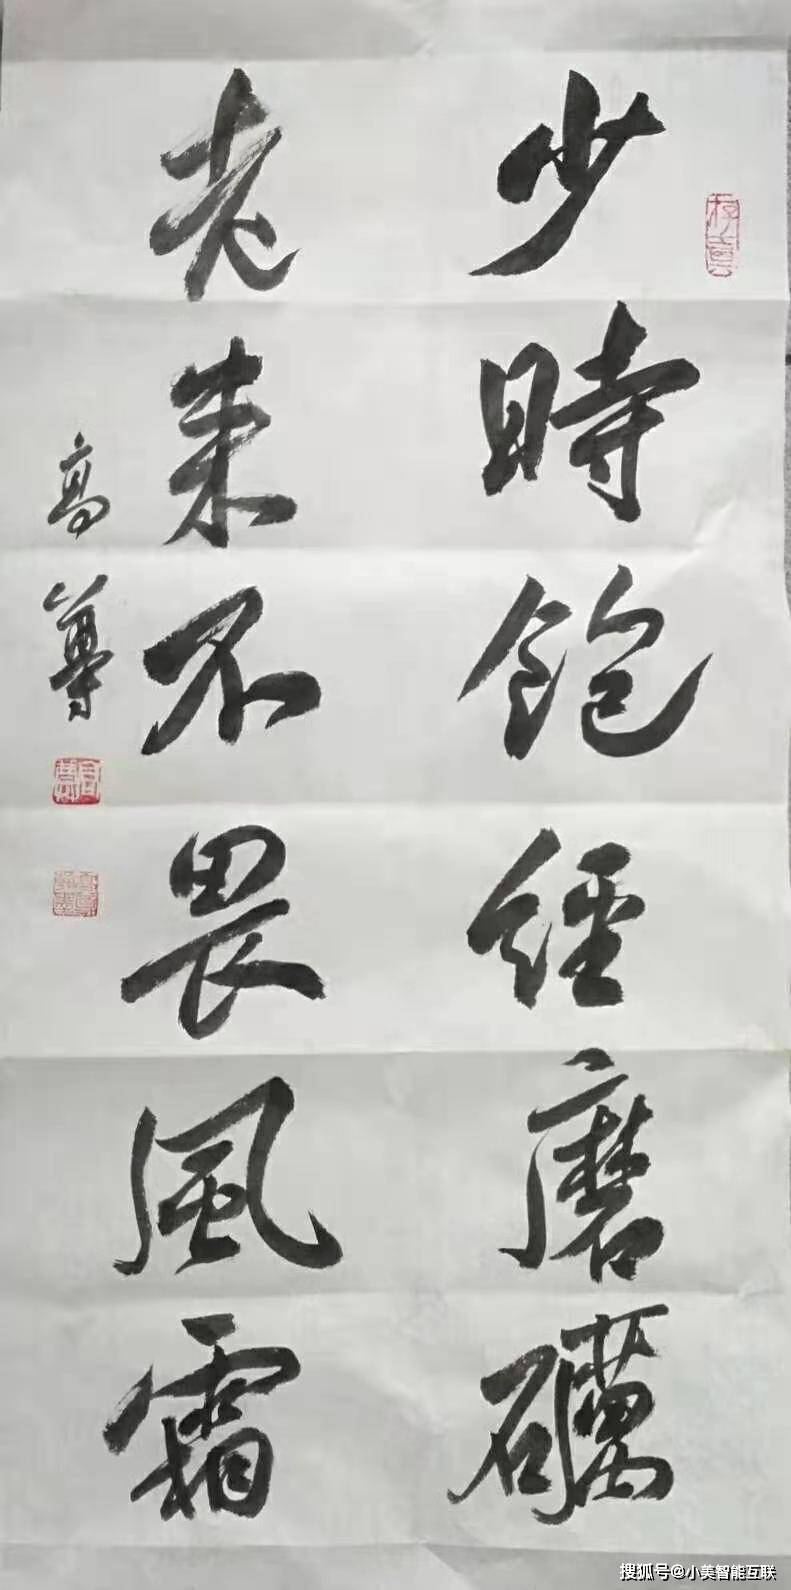 少時飽經磨礪
老來不畏風霜
高尊
搜狐号@小美智能互联